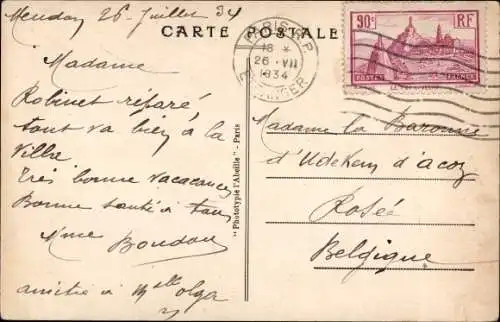 Meudon 26 Juillet 34
CARTE POSTALE
PARIS R.P.
18 *
26 · VII
1934
ETRANGER
90c RF
POSTES
Madame
Robinet réparé
tout va bien à la
Villa
Très bonne vacances
Bonne santé à tous
Mme Boudou
amitié à Mlle Olga
"Phototypie l'Abeille" - Paris
Madame la Baronne
d'Udekem d'acoz
Rosée
Belgique